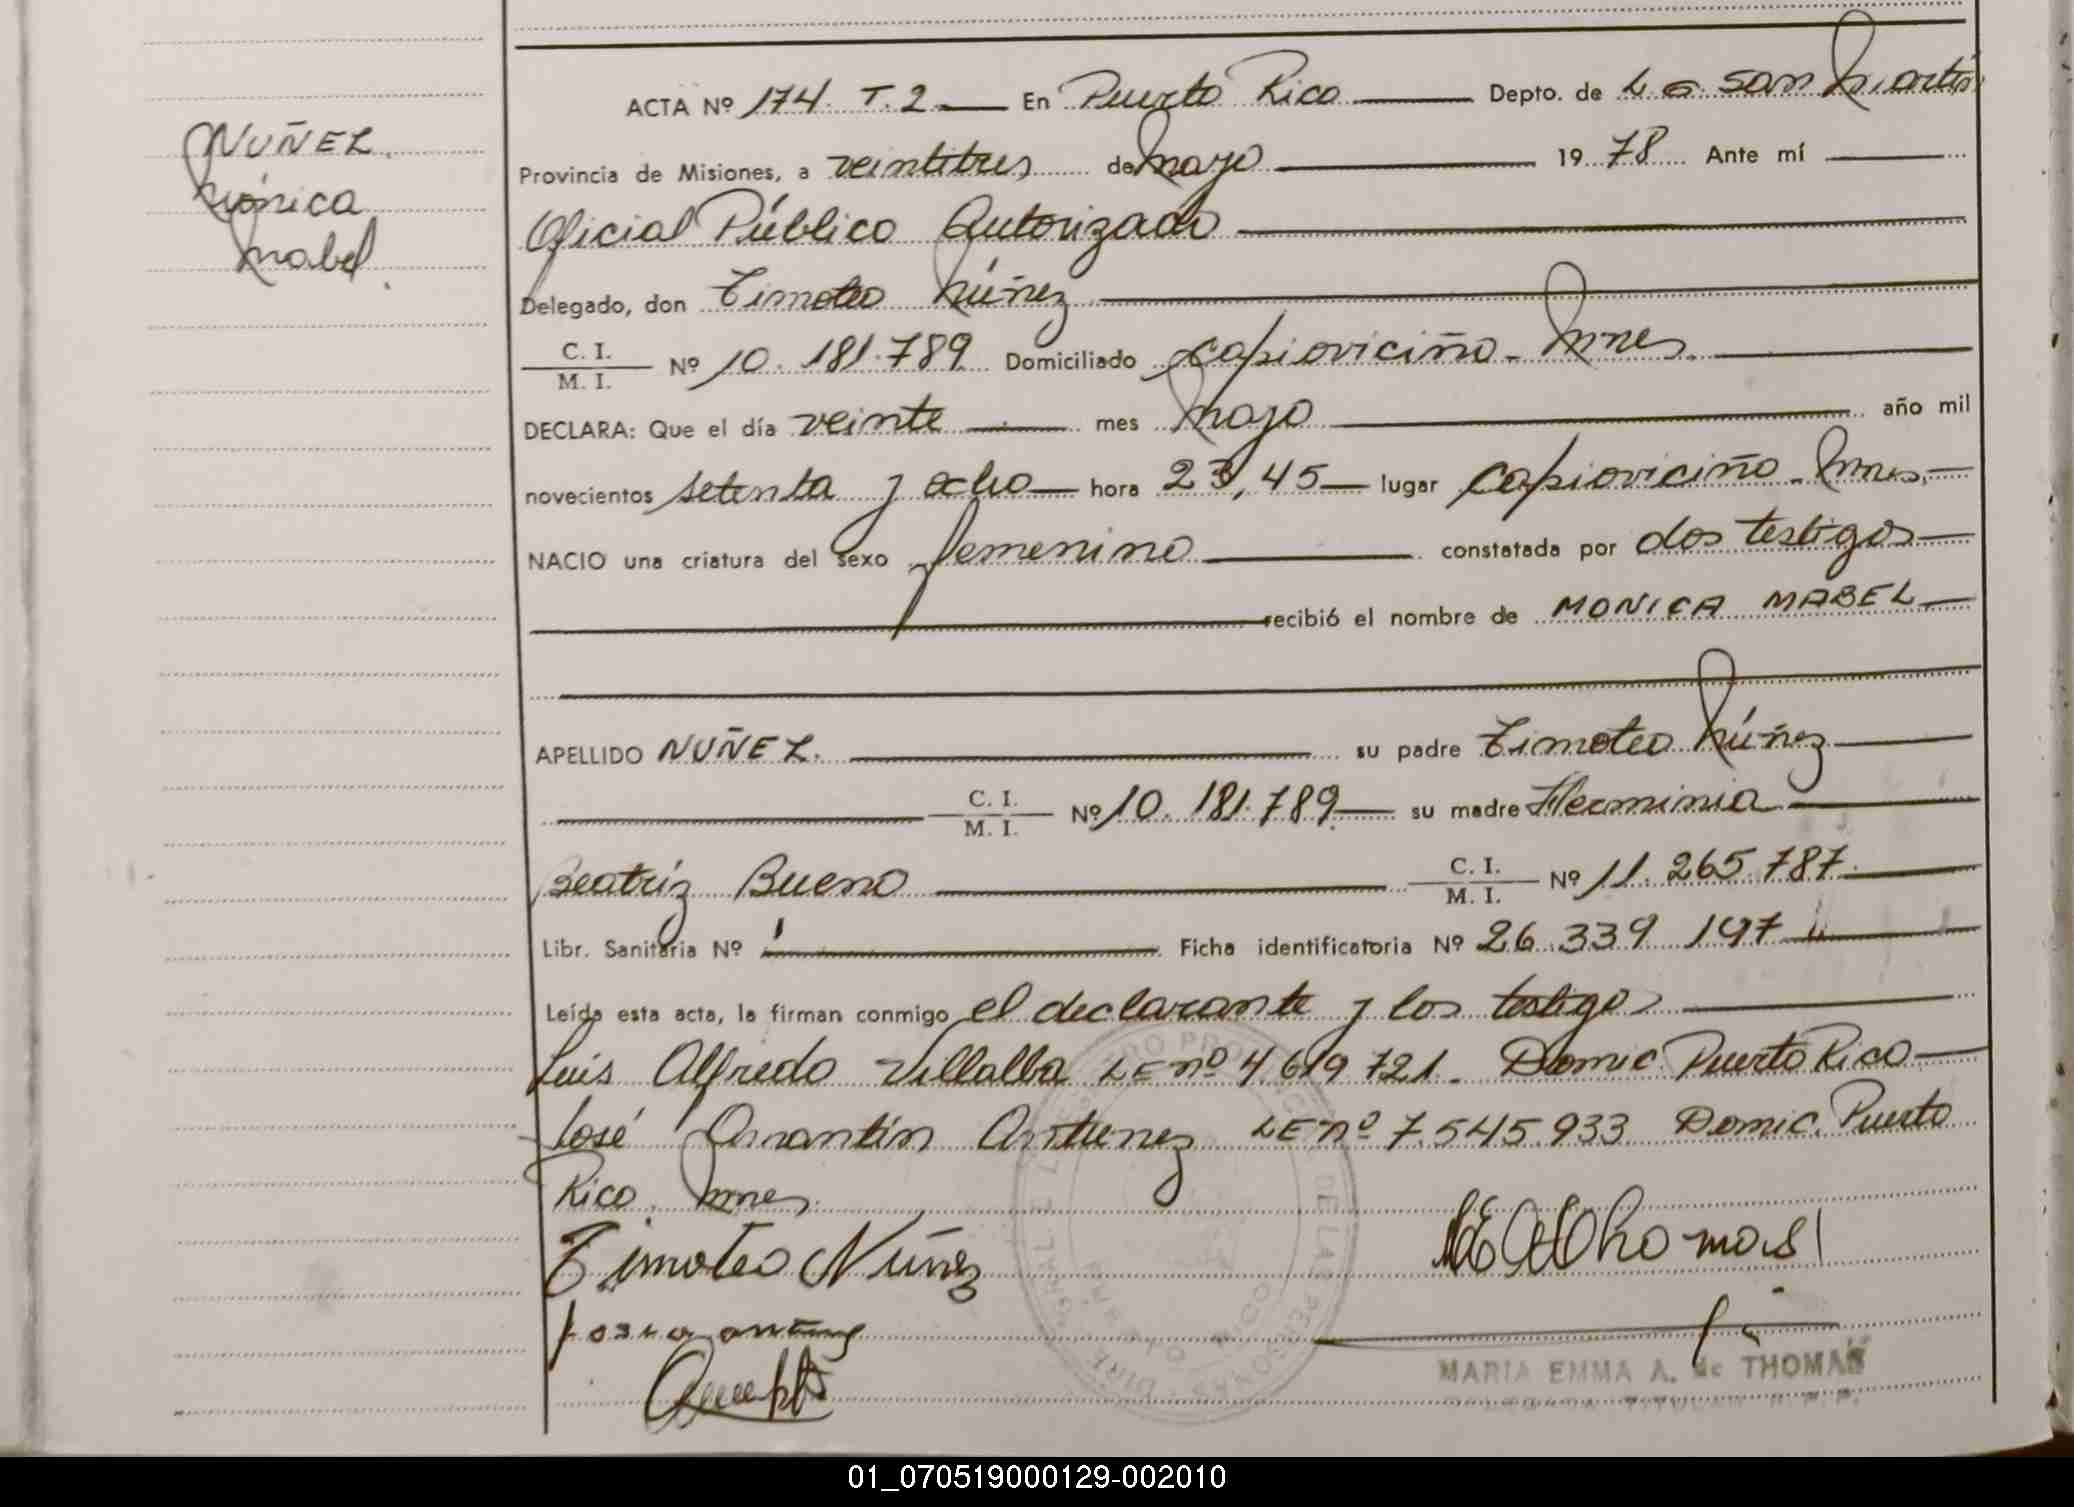 NUÑEZ
Mónica
Mabel.
ACTA Nº 174. T.2 En Puerto Rico Depto. de L. G. San Martín
Provincia de Misiones, a veintitres de Mayo 19 78 Ante mí
Oficial Público Autorizado
Delegado, don Timoteo Núñez
C. I.
M. I. Nº 10.181.789 Domiciliado Capioviciño - Mnes.
DECLARA: Que el día veinte mes Mayo año mil
novecientos setenta y ocho hora 23,45 lugar Capioviciño - Mnes.
NACIO una criatura del sexo femenino constatada por dos testigos
recibió el nombre de MONICA MABEL
APELLIDO NUÑEZ. su padre Timoteo Núñez
C. I.
M. I. Nº 10.181.789 su madre Herminia
Beatríz Bueno C. I.
M. I. Nº 11.265.787.
Libr. Sanitaria Nº Ficha identificatoria Nº 26.339 197
Leída esta acta, la firman conmigo el declarante y los testigos
Luis Alfredo Villalba LE nº 4.619.721. Domic. Puerto Rico
José Amantín Antunez LE nº 7.545.933 Domic. Puerto
Rico. Mnes.
Timoteo Núñez
MARIA EMMA A. de THOMAS
01_070519000129-002010